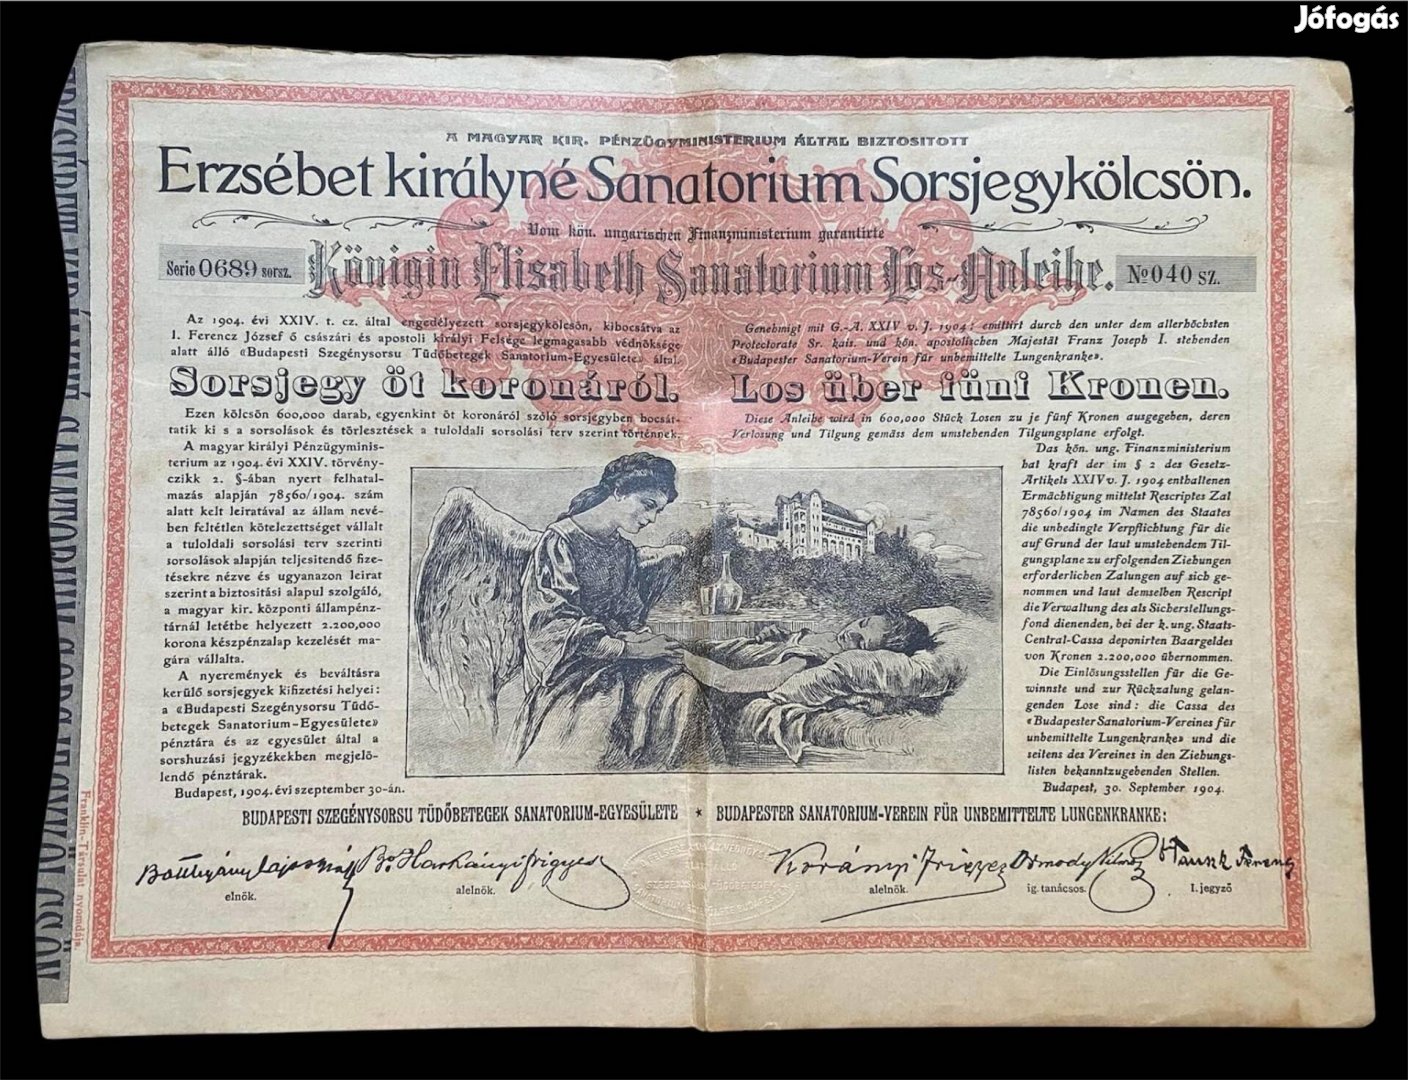 Jófogás
A MAGYAR KIR. PÉNZÜGYMINISTERIUM ÁLTAL BIZTOSITOTT
Erzsébet királyné Sanatorium Sorsjegykölcsön.
Vom kön. ungarischen Finanzministerium garantirte
Königin Elisabeth Sanatorium Los-Anleihe.
Serie 0689 sorsz.
No 040 sz.
Az 1904. évi XXIV. t. cz. által engedélyezett sorsjegykölcsön, kibocsátva az
I. Ferencz József ő császári és apostoli királyi Felsége legmagasabb védnöksége
alatt álló «Budapesti Szegénysorsu Tüdőbetegek Sanatorium-Egyesülete» által.
Sorsjegy öt koronáról.
Ezen kölcsön 600,000 darab, egyenkint öt koronáról szóló sorsjegyben bocsát-
tatik ki s a sorsolások és törlesztések a tuloldali sorsolási terv szerint történnek.
A magyar királyi Pénzügyminis-
terium az 1904. évi XXIV. törvény-
czikk 2. §-ában nyert felhatal-
mazás alapján 78560/1904. szám
alatt kelt leiratával az állam nevé-
ben feltétlen kötelezettséget vállalt
a tuloldali sorsolási terv szerinti
sorsolások alapján teljesitendő fize-
tésekre nézve és ugyanazon leirat
szerint a biztositási alapul szolgáló,
a magyar kir. központi állampénz-
tárnál letétbe helyezett 2.200,000
korona készpénzalap kezelését ma-
gára vállalta.
A nyeremények és beváltásra
kerülő sorsjegyek kifizetési helyei:
a «Budapesti Szegénysorsu Tüdő-
betegek Sanatorium-Egyesülete»
pénztára és az egyesület által a
sorshuzási jegyzékekben megjelö-
lendő pénztárak.
Budapest, 1904. évi szeptember 30-án.
Genehmigt mit G.-A. XXIV v. J. 1904; emittirt durch den unter dem allerhöchsten
Protectorate Sr. kais. und kön. apostolischen Majestät Franz Joseph I. stehenden
«Budapester Sanatorium-Verein für unbemittelte Lungenkranke».
Los über fünf Kronen.
Diese Anleihe wird in 600,000 Stück Losen zu je fünf Kronen ausgegeben, deren
Verlosung und Tilgung gemäss dem umstehenden Tilgungsplane erfolgt.
Das kön. ung. Finanzministerium
hat kraft der im § 2 des Gesetz-
Artikels XXIV v. J. 1904 enthaltenen
Ermächtigung mittelst Rescriptes Zal
78560/1904 im Namen des Staates
die unbedingte Verpflichtung für die
auf Grund der laut umstehendem Til-
gungsplane zu erfolgenden Ziehungen
erforderlichen Zalungen auf sich ge-
nommen und laut demselben Rescript
die Verwaltung des als Sicherstellungs-
fond dienenden, bei der k. ung. Staats-
Central-Cassa deponirten Baargeldes
von Kronen 2.200,000 übernommen.
Die Einlösungsstellen für die Ge-
winnste und zur Rückzalung gelan-
genden Lose sind: die Cassa des
«Budapester Sanatorium-Vereines für
unbemittelte Lungenkranke» und die
seitens des Vereines in den Ziehungs-
listen bekanntzugebenden Stellen.
Budapest, 30. September 1904.
BUDAPESTI SZEGÉNYSORSU TÜDŐBETEGEK SANATORIUM-EGYESÜLETE * BUDAPESTER SANATORIUM-VEREIN FÜR UNBEMITTELTE LUNGENKRANKE:
Batthyány Lajos
elnök.
Br. Harkányi Frigyes
alelnök.
Korányi Frigyes
alelnök.
Ormody Vilmos
ig. tanácsos.
Ferenc
I. jegyző
Franklin-Társulat nyomdája.